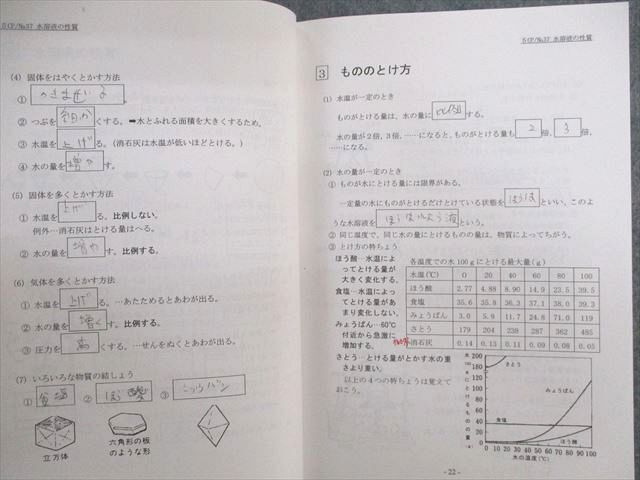 5CP/№37 水溶液の性質
(4) 固体をはやくとかす方法
① かきまぜる
② つぶを 細か くする。 ➡水とふれる面積を大きくするため。
③ 水温を 上げ る。(消石灰は水温が低いほどとける。)
④ 水の量を 増や す。
(5) 固体を多くとかす方法
① 水温を 上げ る。比例しない。
例外…消石灰はとける量はへる。
② 水の量を 増や す。比例する。
(6) 気体を多くとかす方法
① 水温を 上げ る。…あたためるとあわが出る。
② 水の量を 増く す。比例する。
③ 圧力を 高 くする。…せんをぬくとあわが出る。
(7) いろいろな物質の結しょう
① 食塩 ② ほう酸 ③ ミョウバン
立方体
六角形の板
のような形
5CP/№37 水溶液の性質
3 もののとけ方
(1) 水温が一定のとき
ものがとける量は、水の量に 比例 する。
水の量が2倍、3倍、……になると、ものがとける量も 2 倍、 3 倍、
……になる。
(2) 水の量が一定のとき
① ものが水にとける量には限界がある。
一定量の水にものがとけるだけとけている状態を ほうほ といい、このよ
うな水溶液を ほうほ水よう液 という。
② 同じ温度で、同じ水の量にとけるものの量は、物質によってちがう。
③ とけ方の特ちょう
ほう酸…水温によ
ってとける量が
大きく変化する。
食塩…水温によっ
てとける量があ
まり変化しない。
みょうばん…60℃
付近から急激に
増加する。
さとう…とける量がとかす水の重
さより重い。
以上の4つの特ちょうは覚えて
おこう。
各温度での水100gにとける最大量(g)
水温(℃) 0 20 40 60 80 100
ほう酸 2.77 4.88 8.90 14.9 23.5 39.5
食塩 35.6 35.8 36.3 37.1 38.0 39.3
みょうばん 3.0 5.9 11.7 24.8 71.0 119
さとう 179 204 238 287 362 485
消石灰 0.14 0.13 0.11 0.09 0.08 0.05
200
180
160
140
120
100
80
60
40
20
0
さとう
みょうばん
食塩
ほう酸
0 10 20 30 40 50 60 70 80 90 100
水の温度(℃)
- 22 -